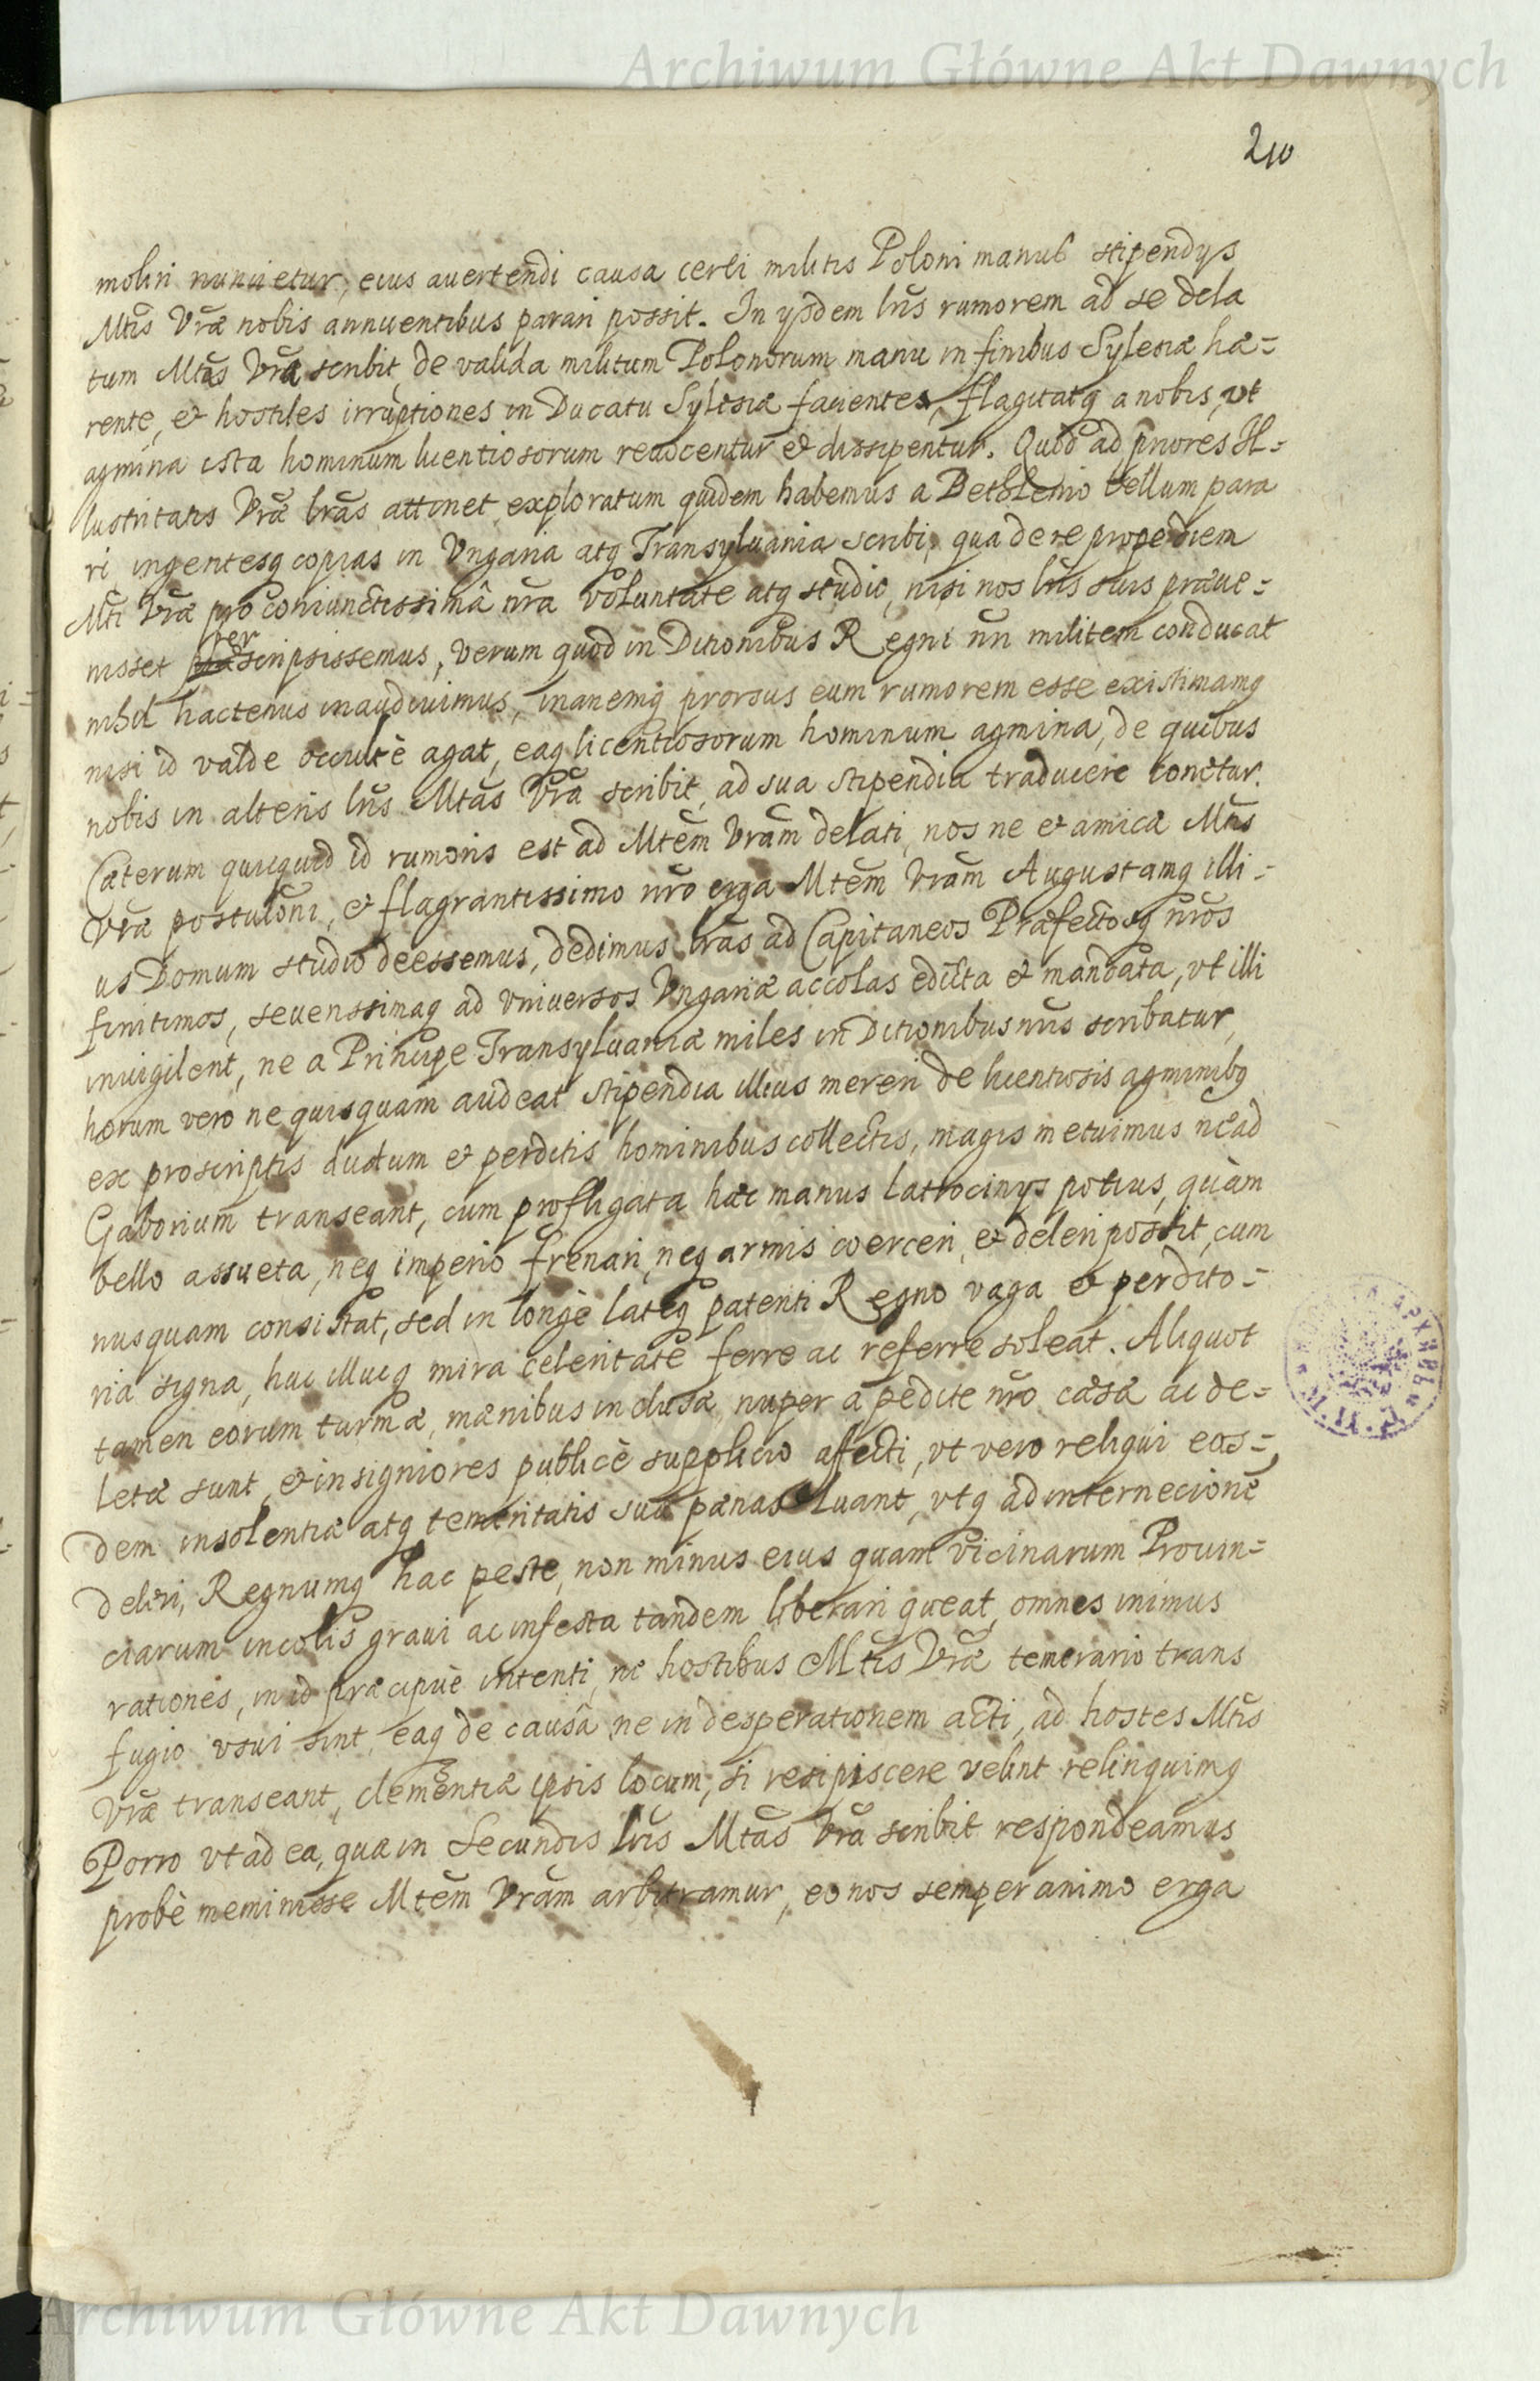 Archiwum Główne Akt Dawnych
210
moliri nunietur, eius auertendi causa certi militis Poloni manus stipendys
Mtis Vrae nobis annuentibus parari possit. In ysdem lris rumorem ad se dela
tum Mtas Vra scribit, de valida militum Polonorum manu in finibus Sylesiae hae=
rente, et hostiles irruptiones in Ducatu Sylesiae faciente, flagitatq a nobis, vt
agmina ista hominum licentiosorum reuocentur et dissipentur. Quod ad priores Il=
lustritatis Vrae lras attinet, exploratum quidem habemus a Bethlenio bellum para
ri, ingentesq copias in Vngaria atq Transyluania scribi, qua de re propediem
Mti Vrae pro coniunctissimâ nra voluntate atq studio, nisi nos lris suis praeue=
nisset perscripsissemus, verum quod in Ditionibus Regni nri militem conducat
nihil hactenus inaudiuimus, inanemq prorsus eum rumorem esse existimamq
nisi id valde occultè agat, eaq licentiosorum hominum agmina, de quibus
nobis in alteris lris Mtas Vra scribit, ad sua stipendia traducere conetur.
Caeterum quicquid id rumoris est ad Mtem Vram delati, nos ne et amicae Mtis
Vrae postulõni, et flagrantissimo nro erga Mtem Vram Augustamq illi=
us Domum studio deessemus, dedimus lras ad Capitaneos Praefectosq nros
finitimos, seuerissimaq ad vniuersos Vngariae accolas edicta et mandata, vt illi
inuigilent, ne a Principe Transyluaniae miles in Ditionibus nris scribatur,
horum vero ne quisquam audeat stipendia illius mereri de licentiosis agminibq
ex proscriptis dudum et perditis hominibus collectis, magis metuimus ne ad
Gaborium transeant, cum profligata haec manus latrocinys potius, quàm
bello assueta, neq imperio frenari, neq armis coerceri, et deleri possit, cum
nusquam consistat, sed in longè lateq patenti Regno vaga et perdito=
ria signa, huc illucq mira celeritate ferre ac referre soleat. Aliquot
tamen eorum turmae, maenibus inclusae, nuper a pedite nro caesae ac de=
letae sunt, et insigniores publicè supplicio affecti, vt vero reliqui eos=
dem insolentiae atq temeritatis suae paenas luant, vtq ad internecionē
deleri, Regnumq hac peste, non minus eius quam vicinarum Prouin=
ciarum incolis graui ac infesta tandem liberari queat, omnes inimus
rationes, in id praecipuè intenti, ne hostibus Mtis Vrae temerario trans
fugio vsui sint, eaq de causâ, ne in desperationem acti, ad hostes Mtis
Vrae transeant, clementiae ipsis locum, si resipiscere velint relinquimq
Porro vt ad ea, quae in secundis lris Mtas Vra scribit respondeamus
probè meminisse Mtem Vram arbitramur, eo nos semper animo erga
Archiwum Główne Akt Dawnych